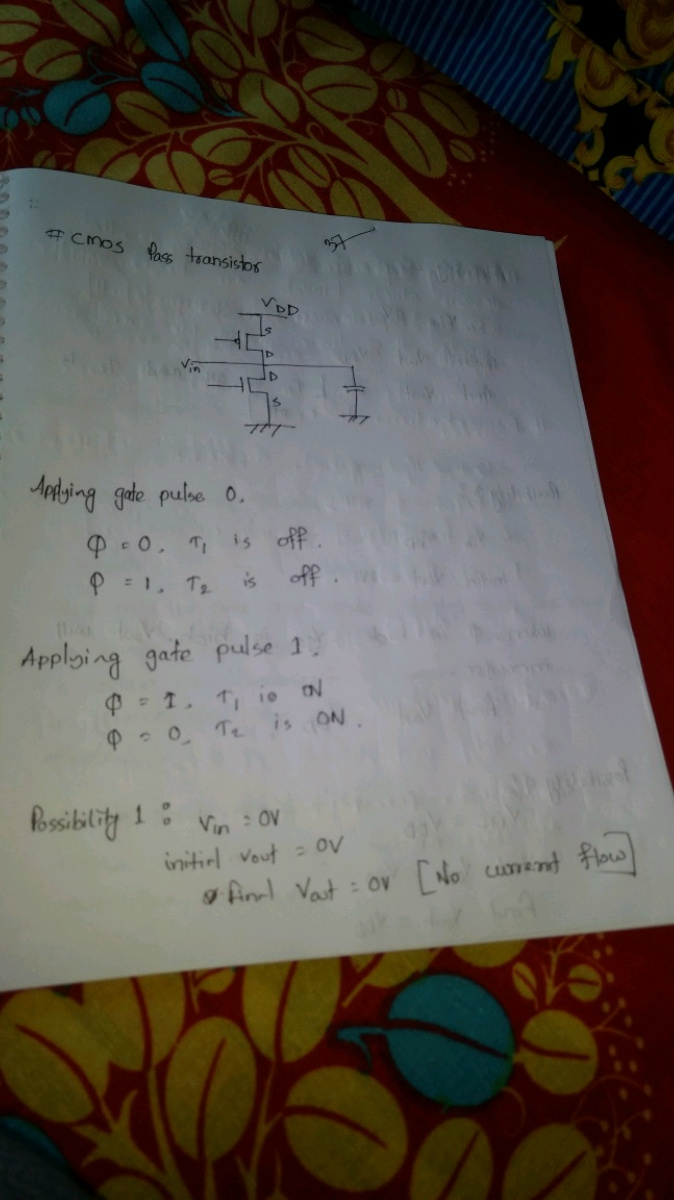 # CMOS Pass transistor
VDD
S
D
Vin
D
S
Applying gate pulse 0.
Φ = 0, T1 is off.
Φ = 1, T2 is off.
Applying gate pulse 1.
Φ = 1, T1 is ON
Φ = 0, T2 is ON.
Possibility 1: Vin = 0V
initial Vout = 0V
final Vout = 0V [No current flow]